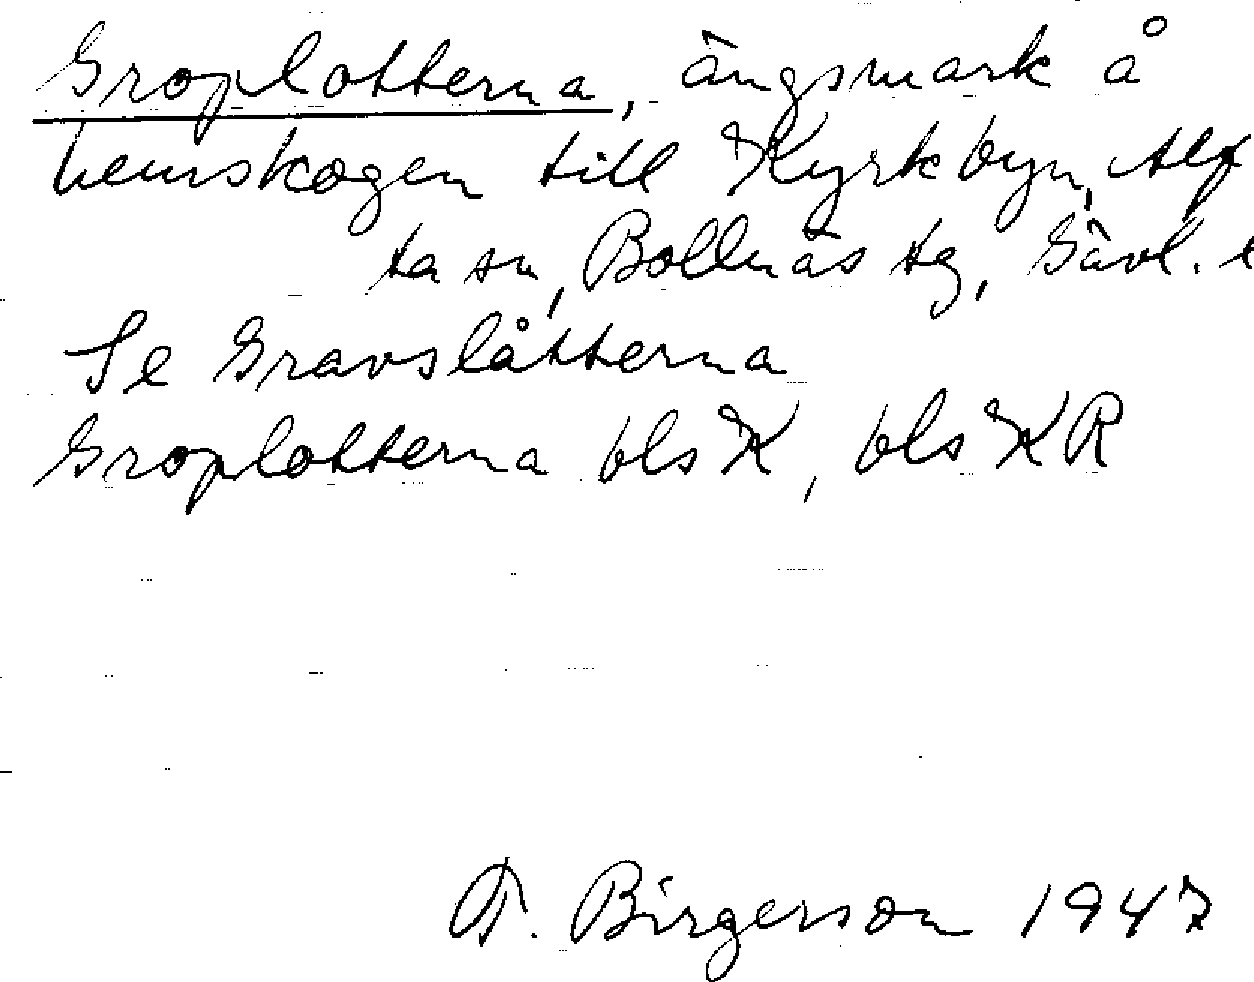 Groplotterna, ängsmark å
hemskogen till Kyrkbyn, Alf
ta sn, Bollnäs tg, Gävl. l
Se Gravslåtterna
Groplotterna bls K, bls KR
F. Birgerson 1947